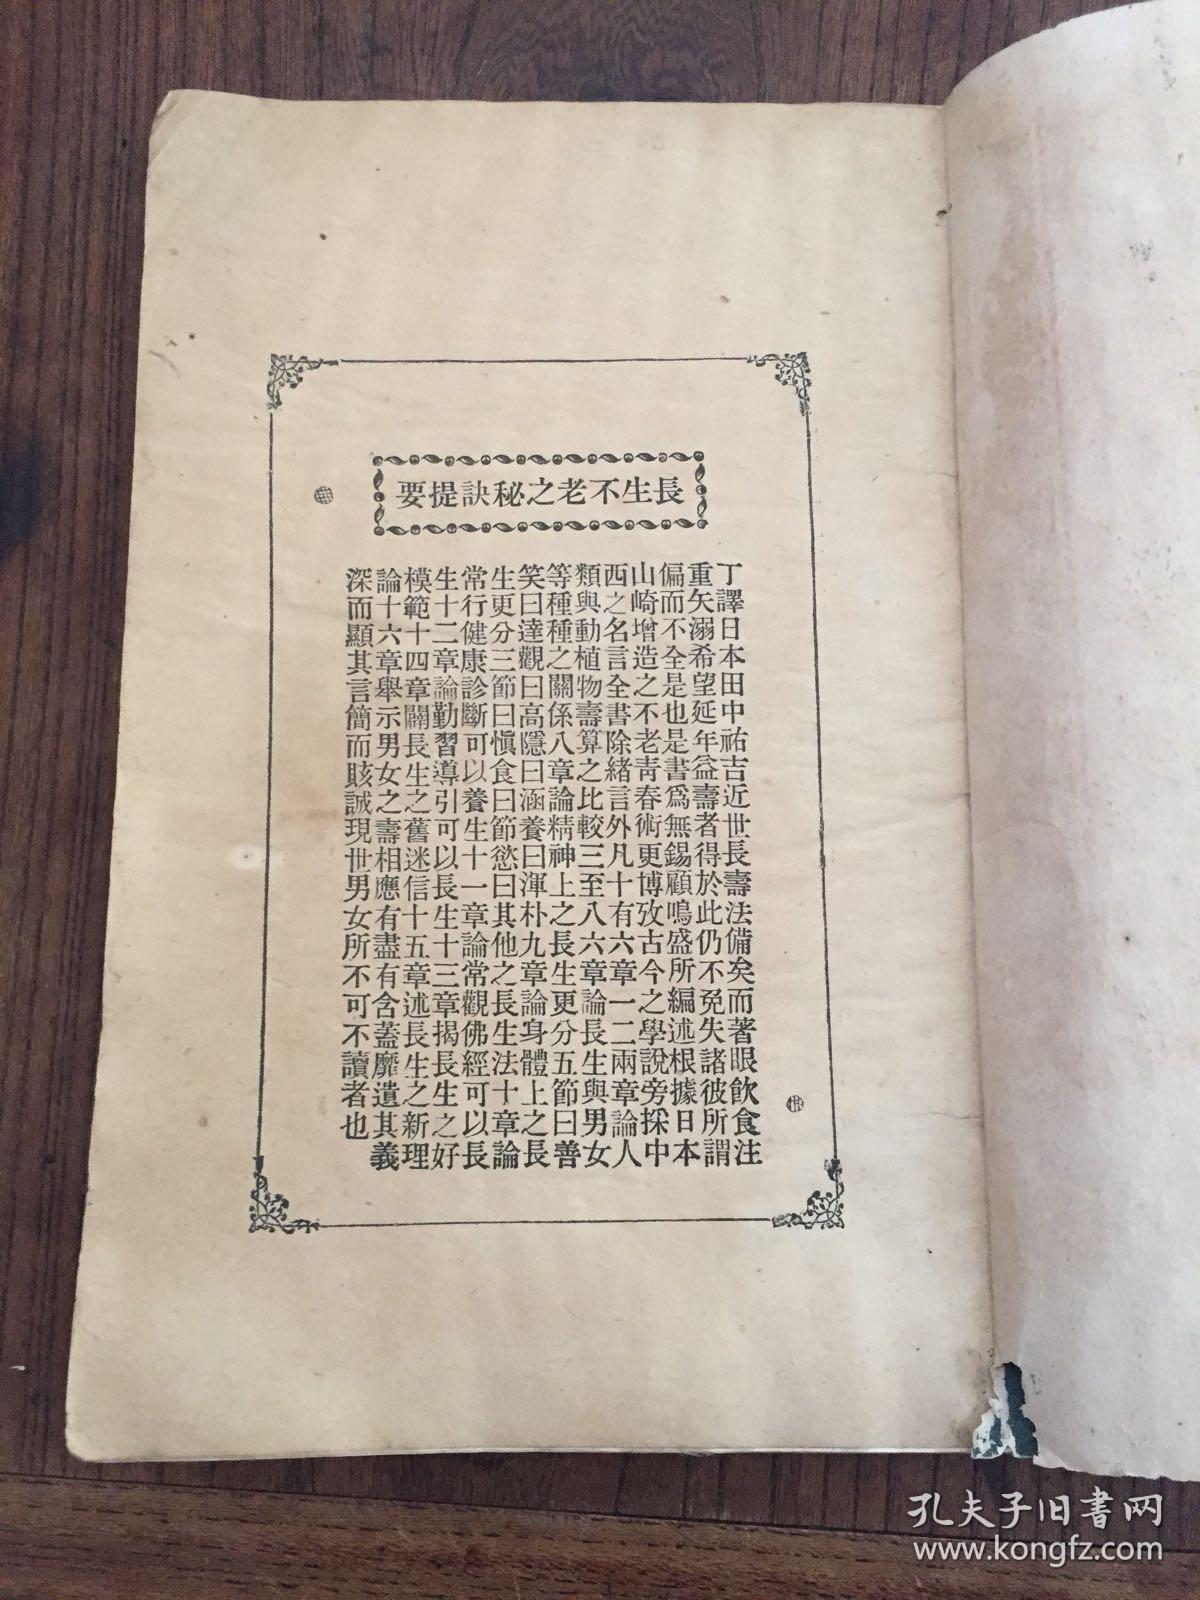 長生不老之秘訣提要
丁譯日本田中祐吉近世長壽法備矣而著眼飲食注
重矢溺希望延年益壽者得於此仍不免失諸彼所謂
偏而不全是也是書爲無錫顧鳴盛所編述根據日本
山崎增造之不老靑春術更博攷古今之學說旁採中
西之名言全書除緒言外凡十有六章一二兩章論人
類與動植物壽算之比較三至八六章論長生與男女
等種種之關係八章論精神上之長生更分五節曰善
笑曰達觀曰高隱曰涵養曰渾朴九章論身體上之長
生更分三節曰愼食曰節慾曰其他之長生法十章論
常行健康診斷可以養生十一章論常觀佛經可以長
生十二章論勤習導引可以長生十三章揭長生之好
模範十四章闢長生之舊迷信十五章述長生之新理
論十六章舉示男女之壽相應有盡有含蓋靡遺其義
深而顯其言簡而賅誠現世男女所不可不讀者也
孔夫子旧書网
www.kongfz.com